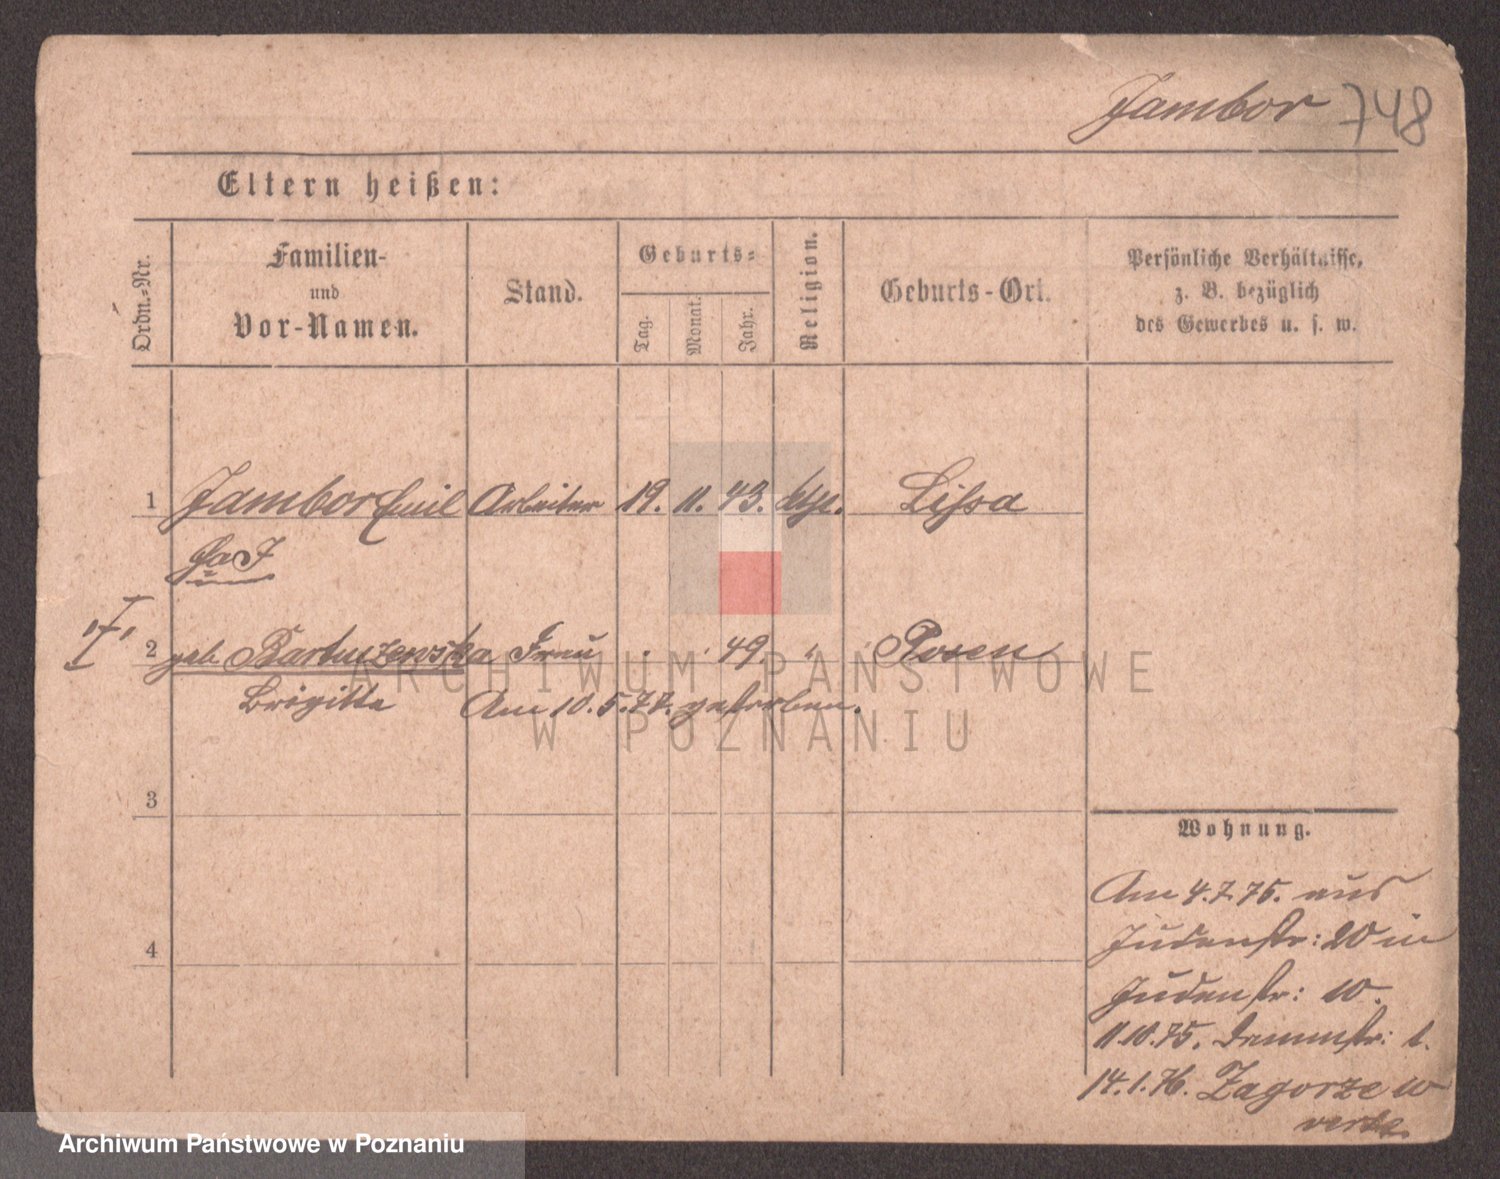 Jambor 748
Eltern heißen:
Ordn.-Nr.
Familien-
und
Vor-Namen.
Stand.
Geburts-
Tag.
Monat.
Jahr.
Religion.
Geburts-Ort.
Persönliche Verhältnisse,
z. B. bezüglich
des Gewerbes u. s. w.
1 Jambor Emil Arbeiter 19. 11. 43. Lissa
2 geb. Bartuszewska Frau . . 49. " Posen
Brigitte Am 10.5.77. gestorben.
3
4
Wohnung.
Am 4.7.75. aus
Judenstr: 20 in
Judenstr: 10.
11.10.75. Dammstr: 1.
14.1.76. Zagorze 10
verte
ARCHIWUM PAŃSTWOWE
W POZNANIU
Archiwum Państwowe w Poznaniu